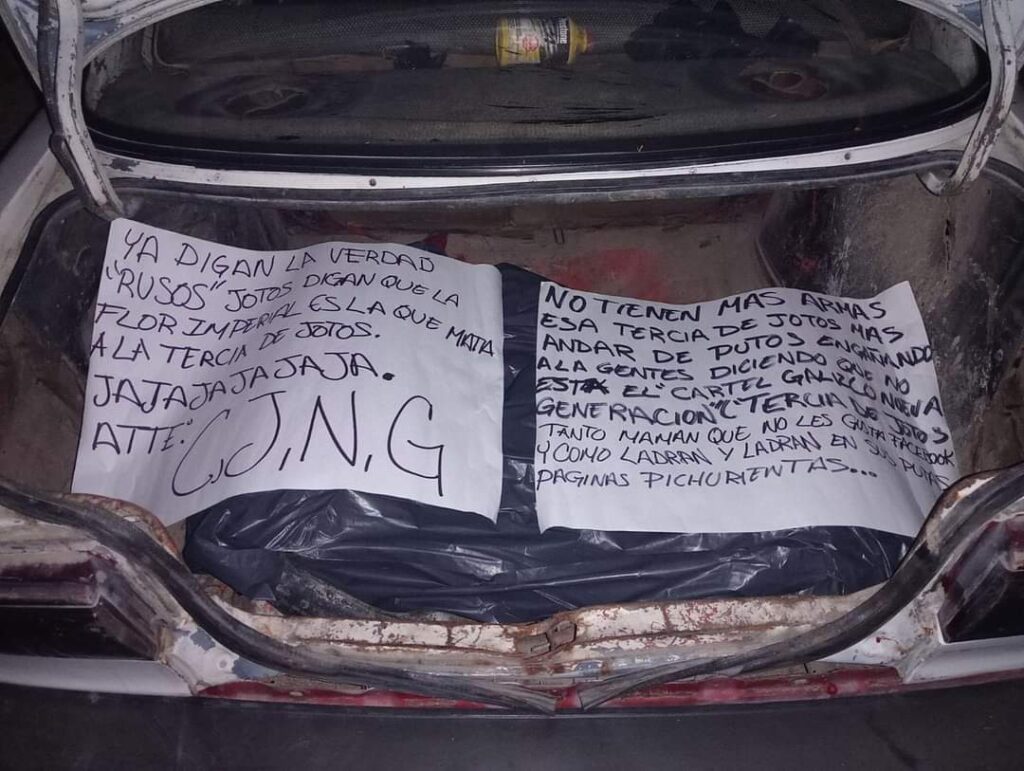 YA DIGAN LA VERDAD
"RUSOS" JOTOS DIGAN QUE LA
FLOR IMPERIAL ES LA QUE MATA
A LA TERCIA DE JOTOS.
JAJAJAJAJAJA.
ATTE: C.J.N.G
NO TIENEN MAS ARMAS
ESA TERCIA DE JOTOS MAS
ANDAR DE PUTOS ENGAÑANDO
A LA GENTES DICIENDO QUE NO
ESTA EL "CARTEL GALIZCO NUEVA
GENERACION" "TERCIA DE JOTOS
TANTO MAMAN QUE NO LES GUSTA FACEBOOK
Y COMO LADRAN Y LADRAN EN SUS PUTAS
PAGINAS PICHURIENTAS...